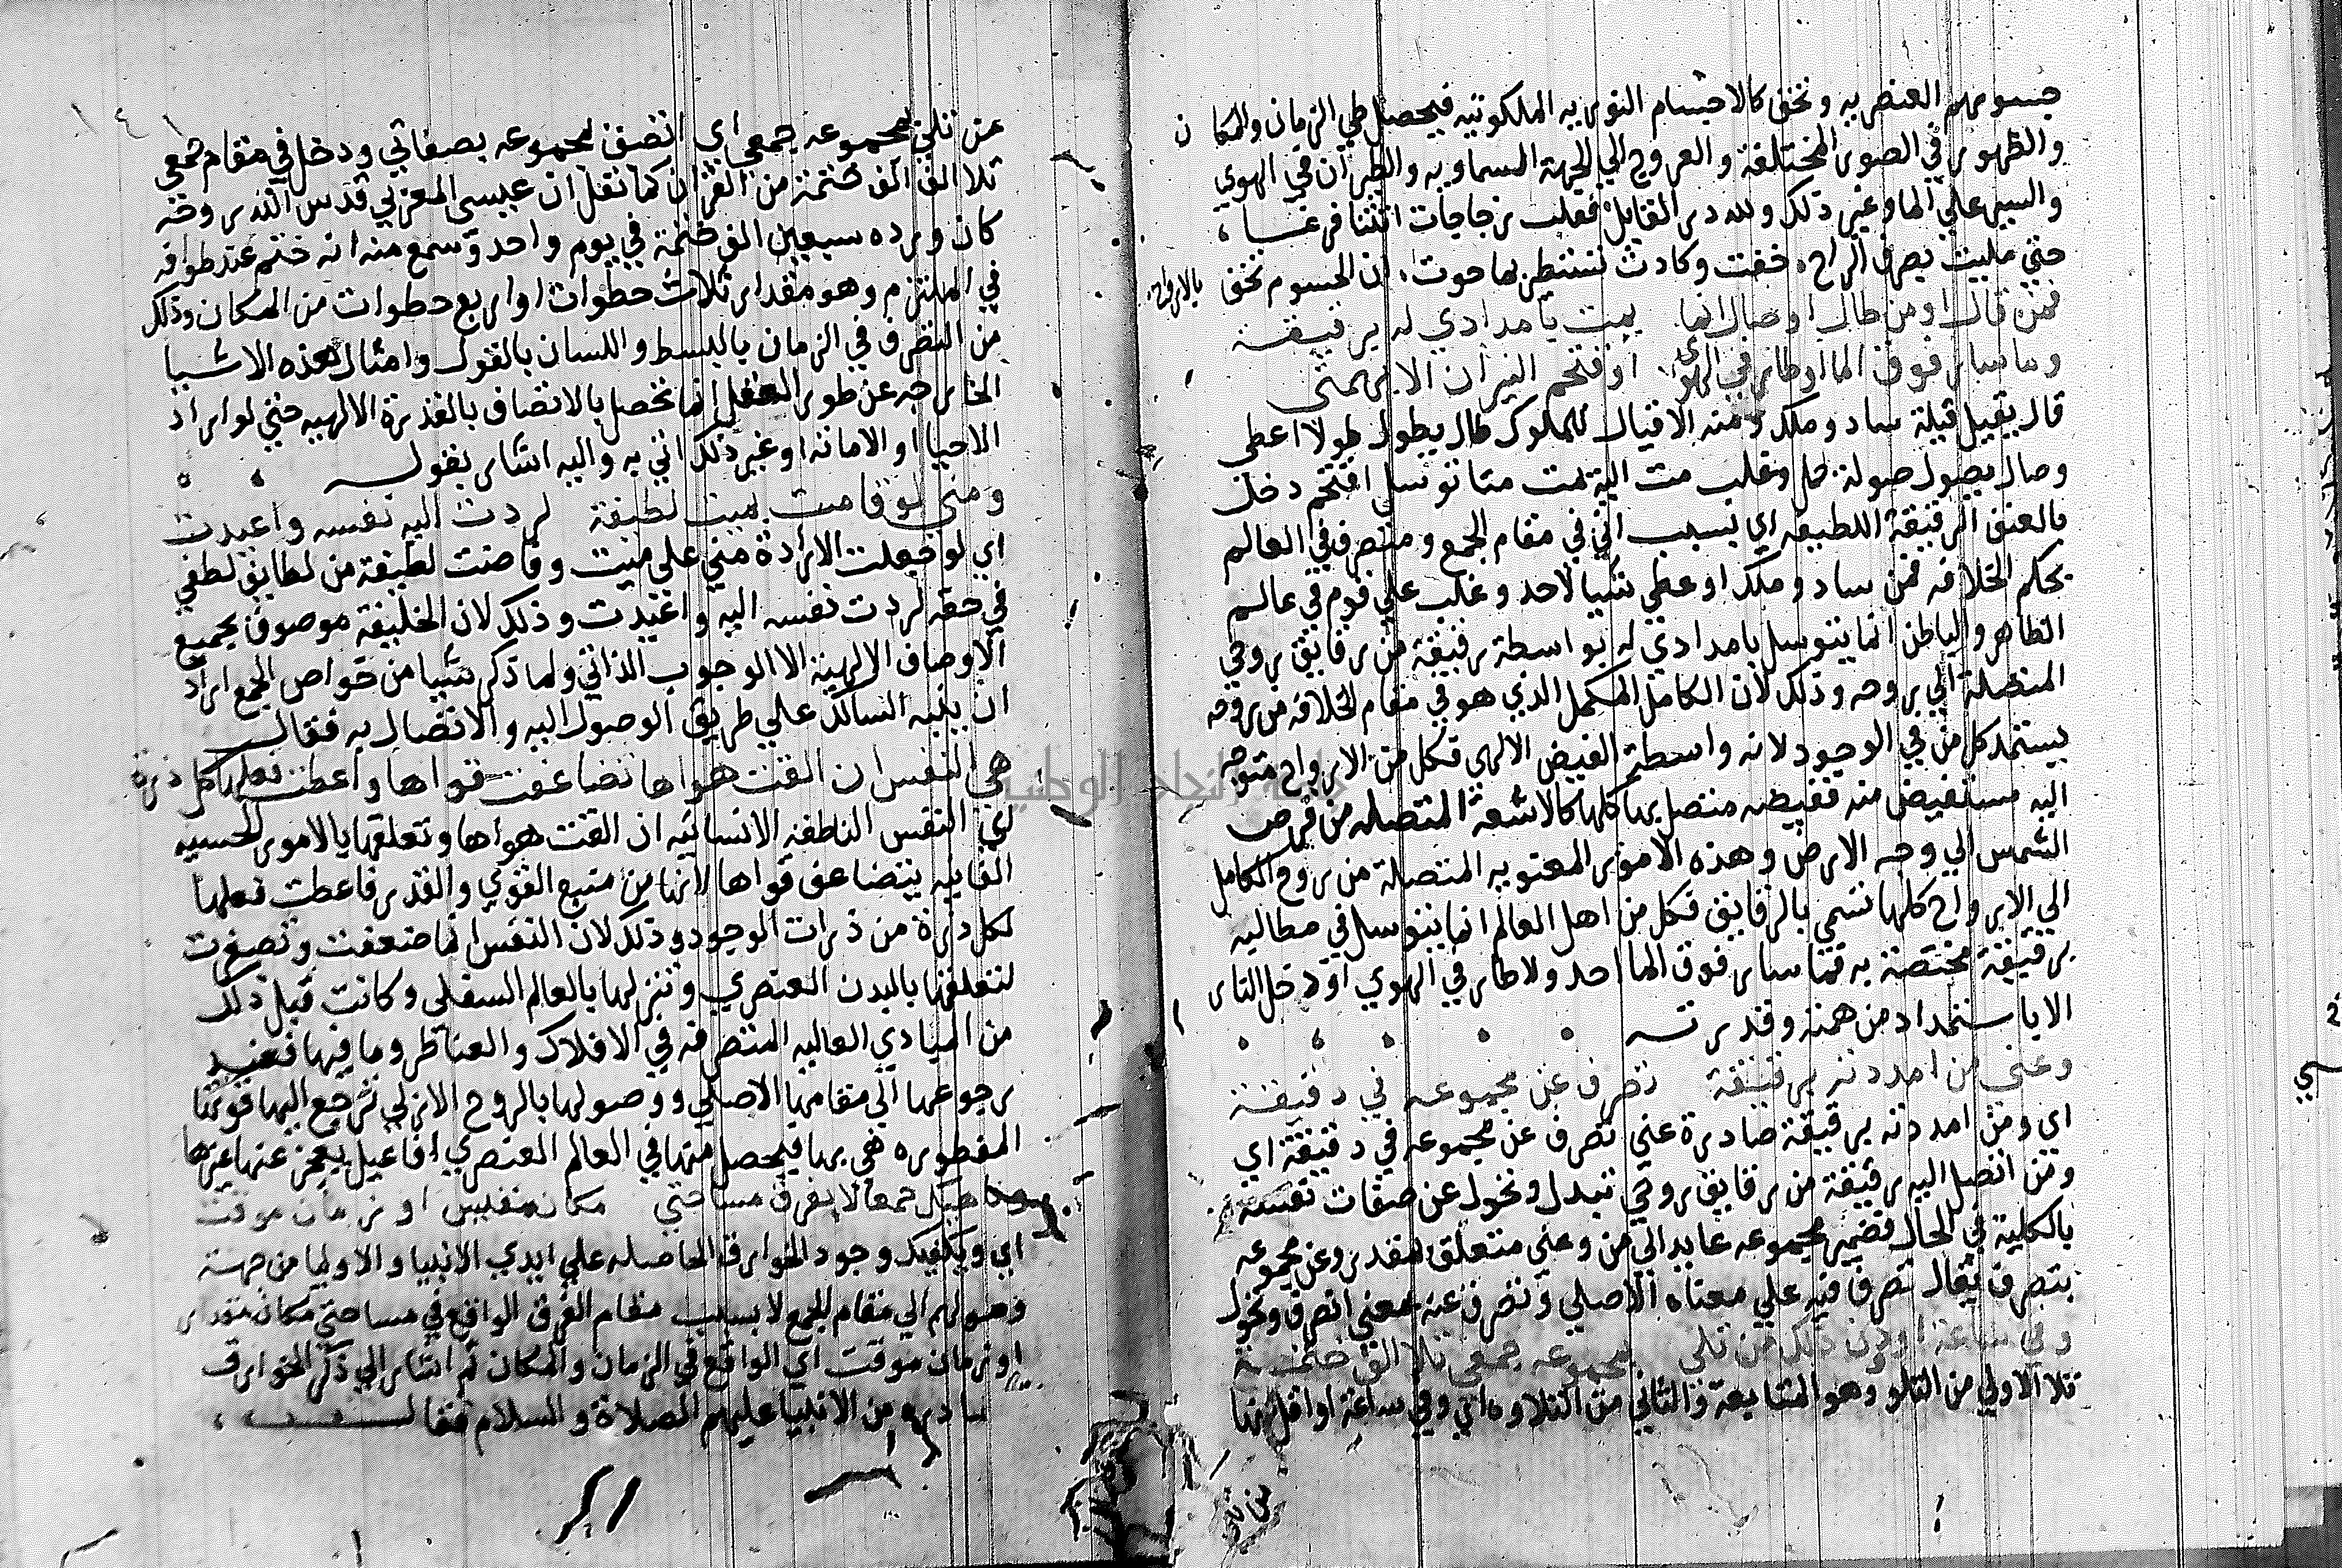 جسومهم العنصريه وتخف كالاجسام النوريه الملكوتيه فيحصل طي الزمان والمكان
والظهور في الصور المختلفة والعروج الي الجهة السماويه والطيران في الهوي
والسير علي الما وغير ذلك ولله در القايل ثقلت زجاجات اتتنا فرغا
حتي مليت بصرف الراح خفت وكادت تستطير بما حوت ان الجسوم تخف بالارواح
فمن قال او من طال او صال انما يمت بامدادي له برقيقة
وما سار فوق الما او طار في الهوي او اقتحم النيران الا بهمتي
قال يقيل قيلة ساد وملك ومنه الاقيال للملوك طال يطول طولا اعطي
وصال يصول صولة حمل وغلب مت اليه يمت متا توسل اقتحم دخل
بالعنف الرقيقة اللطيفه اي بسبب اني في مقام الجمع ومتصرف في العالم
بحكم الخلافه فمن ساد وملك او عطي شيا لاحد وغلب علي قوم في عالم
الظاهر والباطن انما يتوسل بامدادي له بواسطة رقيقة من رقايق روحي
المتصلة الي روحه وذلك لان الكامل المكمل الذي هو في مقام الخلافه من روحه
يستمد كل من في الوجود لانه واسطة الفيض الالهي فكل من الارواح متوجه
اليه مستفيض منه ففيضه متصل بها كلها كالاشعة المتصله من قرص
الشمس الي وجه الارض وهذه الامور المعنويه المتصلة من روح الكامل
الي الارواح كلها تسمي بالرقايق فكل من اهل العالم انما يتوسل في مطالبه
برقيقة مختصة به فما سار فوق الما احد ولا طار في الهوي او دخل النار
الا باستمداد من همته وقدرته
وعني من امددته برقيقة تصرف عن مجموعه في دقيقة
اي ومن امددته برقيقة صادرة عني تصرف عن مجموعه في دقيقة اي
ومن اتصل اليه رقيقة من رقايق روحي تبدل وتحول عن صفات نفسه
بالكلية في الحال فضمير مجموعه عايد الي من وعني متعلق بمقدر وعن مجموعه
بتصرف يقال تصرف فيه علي معناه الاصلي وتصرف عنه بمعني انصرف وتحول
وفي ساعة او دون ذلك من تلي بمجموعه جمعي تلا الف ختمة
تلا الاولي من التلو وهو المتابعة والثاني من التلاوه اي وفي ساعة او اقل منها
من تلي
عن تلي بمجموعه جمعي اي اتصف بمجموعه بصفاتي ودخل في مقام جمعي
تلا الف الف ختمة من القران كما نقل ان عيسي المغربي قدس الله روحه
كان ورده سبعين الف ختمة في يوم واحد وسمع منه انه ختم عند طوافه
في الملتزم وهو مقدار ثلاث خطوات او اربع خطوات من المكان وذلك
من التصرف في الزمان بالبسط واللسان بالقول وامثال هذه الاشيا
الخارجه عن طور العقل انما تحصل بالاتصاف بالقدرة الالهيه حتي لو اراد
الاحيا او الاماته او غير ذلك اتي به واليه اشار بقوله
ومني لو قامت بميت لطيفة لردت اليه نفسه واعيدت
اي لو فعلت الارادة مني على ميت وقامت لطيفة من لطايف لطفي
في حقه لردت نفسه اليه واعيدت وذلك لان الخليفة موصوف بجميع
الاوصاف الالهية الا الوجوب الذاتي ولما ذكر شيا من خواص الجمع اراد
ان ينبه السالك علي طريق الوصول اليه والاتصال به فقال
هي النفس ان القت هواها تضاعفت قواها واعطت فعلها كل ذرة
اي النفس الناطقه الانسانيه ان القت هواها وتعلقها بالامور الحسيه
الفانيه يتضاعف قواها لانها من منبع القوي والقدر فاعطت فعلها
لكل ذرة من ذرات الوجود وذلك لان النفس انما ضعفت وتصغرت
لتعلقها بالبدن العنصري وتنزلها بالعالم السفلي وكانت قبل ذلك
من المبادي العاليه المتصرفه في الافلاك والعناصر وما فيها فعند
رجوعها الي مقامها الاصلي ووصولها بالروح الازلي ترجع اليها قوتها
المفطوره هي بها فيحصل منها في العالم العنصري افاعيل يعجز عنها غيرها
وناهيك جمعا لا بفرق مساحتي مكان مقيس او زمان موقت
اي ويكفيك وجود الخوارق الحاصله علي ايدي الانبيا والاوليا من جهة
وصولهم الي مقام الجمع لا بسبب مقام الفرق الواقع في مساحتي مكان مقدار
او زمان موقت اي الواقع في الزمان والمكان ثم اشار الي ذكر الخوارق
الصادره من الانبيا عليهم الصلاة والسلام فقال